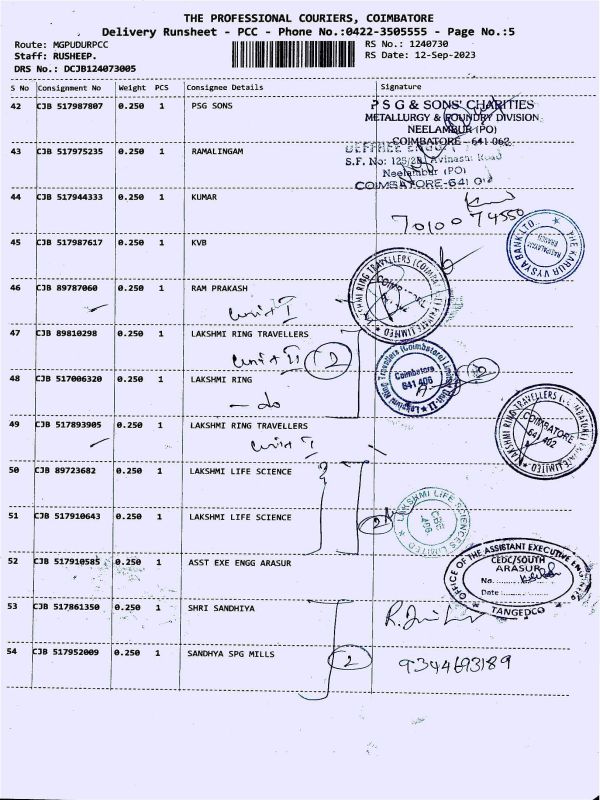 THE PROFESSIONAL COURIERS, COIMBATORE
Delivery Runsheet - PCC - Phone No.:0422-3505555 - Page No.:5
Route: MGPUDURPCC
RS No.: 1240730
Staff: RUSHEEP.
RS Date: 12-Sep-2023
DRS No.: DCJB124073005
S No Consignment No Weight PCS Consignee Details Signature
42 CJB 517987807 0.250 1 PSG SONS
P S G & SONS' CHARITIES
METALLURGY & FOUNDRY DIVISION
NEELAMBUR (PO)
COIMBATORE - 641 062
43 CJB 517975235 0.250 1 RAMALINGAM
S.F. No: 125/2B, Avinashi Road
Neelambur (PO)
COIMBATORE-641
44 CJB 517944333 0.250 1 KUMAR
7010074550
45 CJB 517987617 0.250 1 KVB
THE KARUR VYSYA BANK LTD.
46 CJB 89787060 0.250 1 RAM PRAKASH
LAKSHMI RING TRAVELLERS (COIMBATORE) PRIVATE LIMITED
unit I
47 CJB 89810298 0.250 1 LAKSHMI RING TRAVELLERS
unit II 2
Lakshmi Ring Travellers (Coimbatore) Limited Unit-II
Coimbatore
641 406
48 CJB 517006320 0.250 1 LAKSHMI RING
- do
49 CJB 517893905 0.250 1 LAKSHMI RING TRAVELLERS
unit I
LAKSHMI RING TRAVELLERS (COIMBATORE) PRIVATE LIMITED
COIMBATORE
641 402
50 CJB 89723682 0.250 1 LAKSHMI LIFE SCIENCE
51 CJB 517910643 0.250 1 LAKSHMI LIFE SCIENCE
2
LAKSHMI LIFE SCIENCES LIMITED
CBE
52 CJB 517910585 0.250 1 ASST EXE ENGG ARASUR
OFFICE OF THE ASSISTANT EXECUTIVE ENGINEER
CEDC/SOUTH
ARASUR
No.
Date
TANGEDCO
53 CJB 517861350 0.250 1 SHRI SANDHIYA
54 CJB 517952009 0.250 1 SANDHYA SPG MILLS
2
9344693189